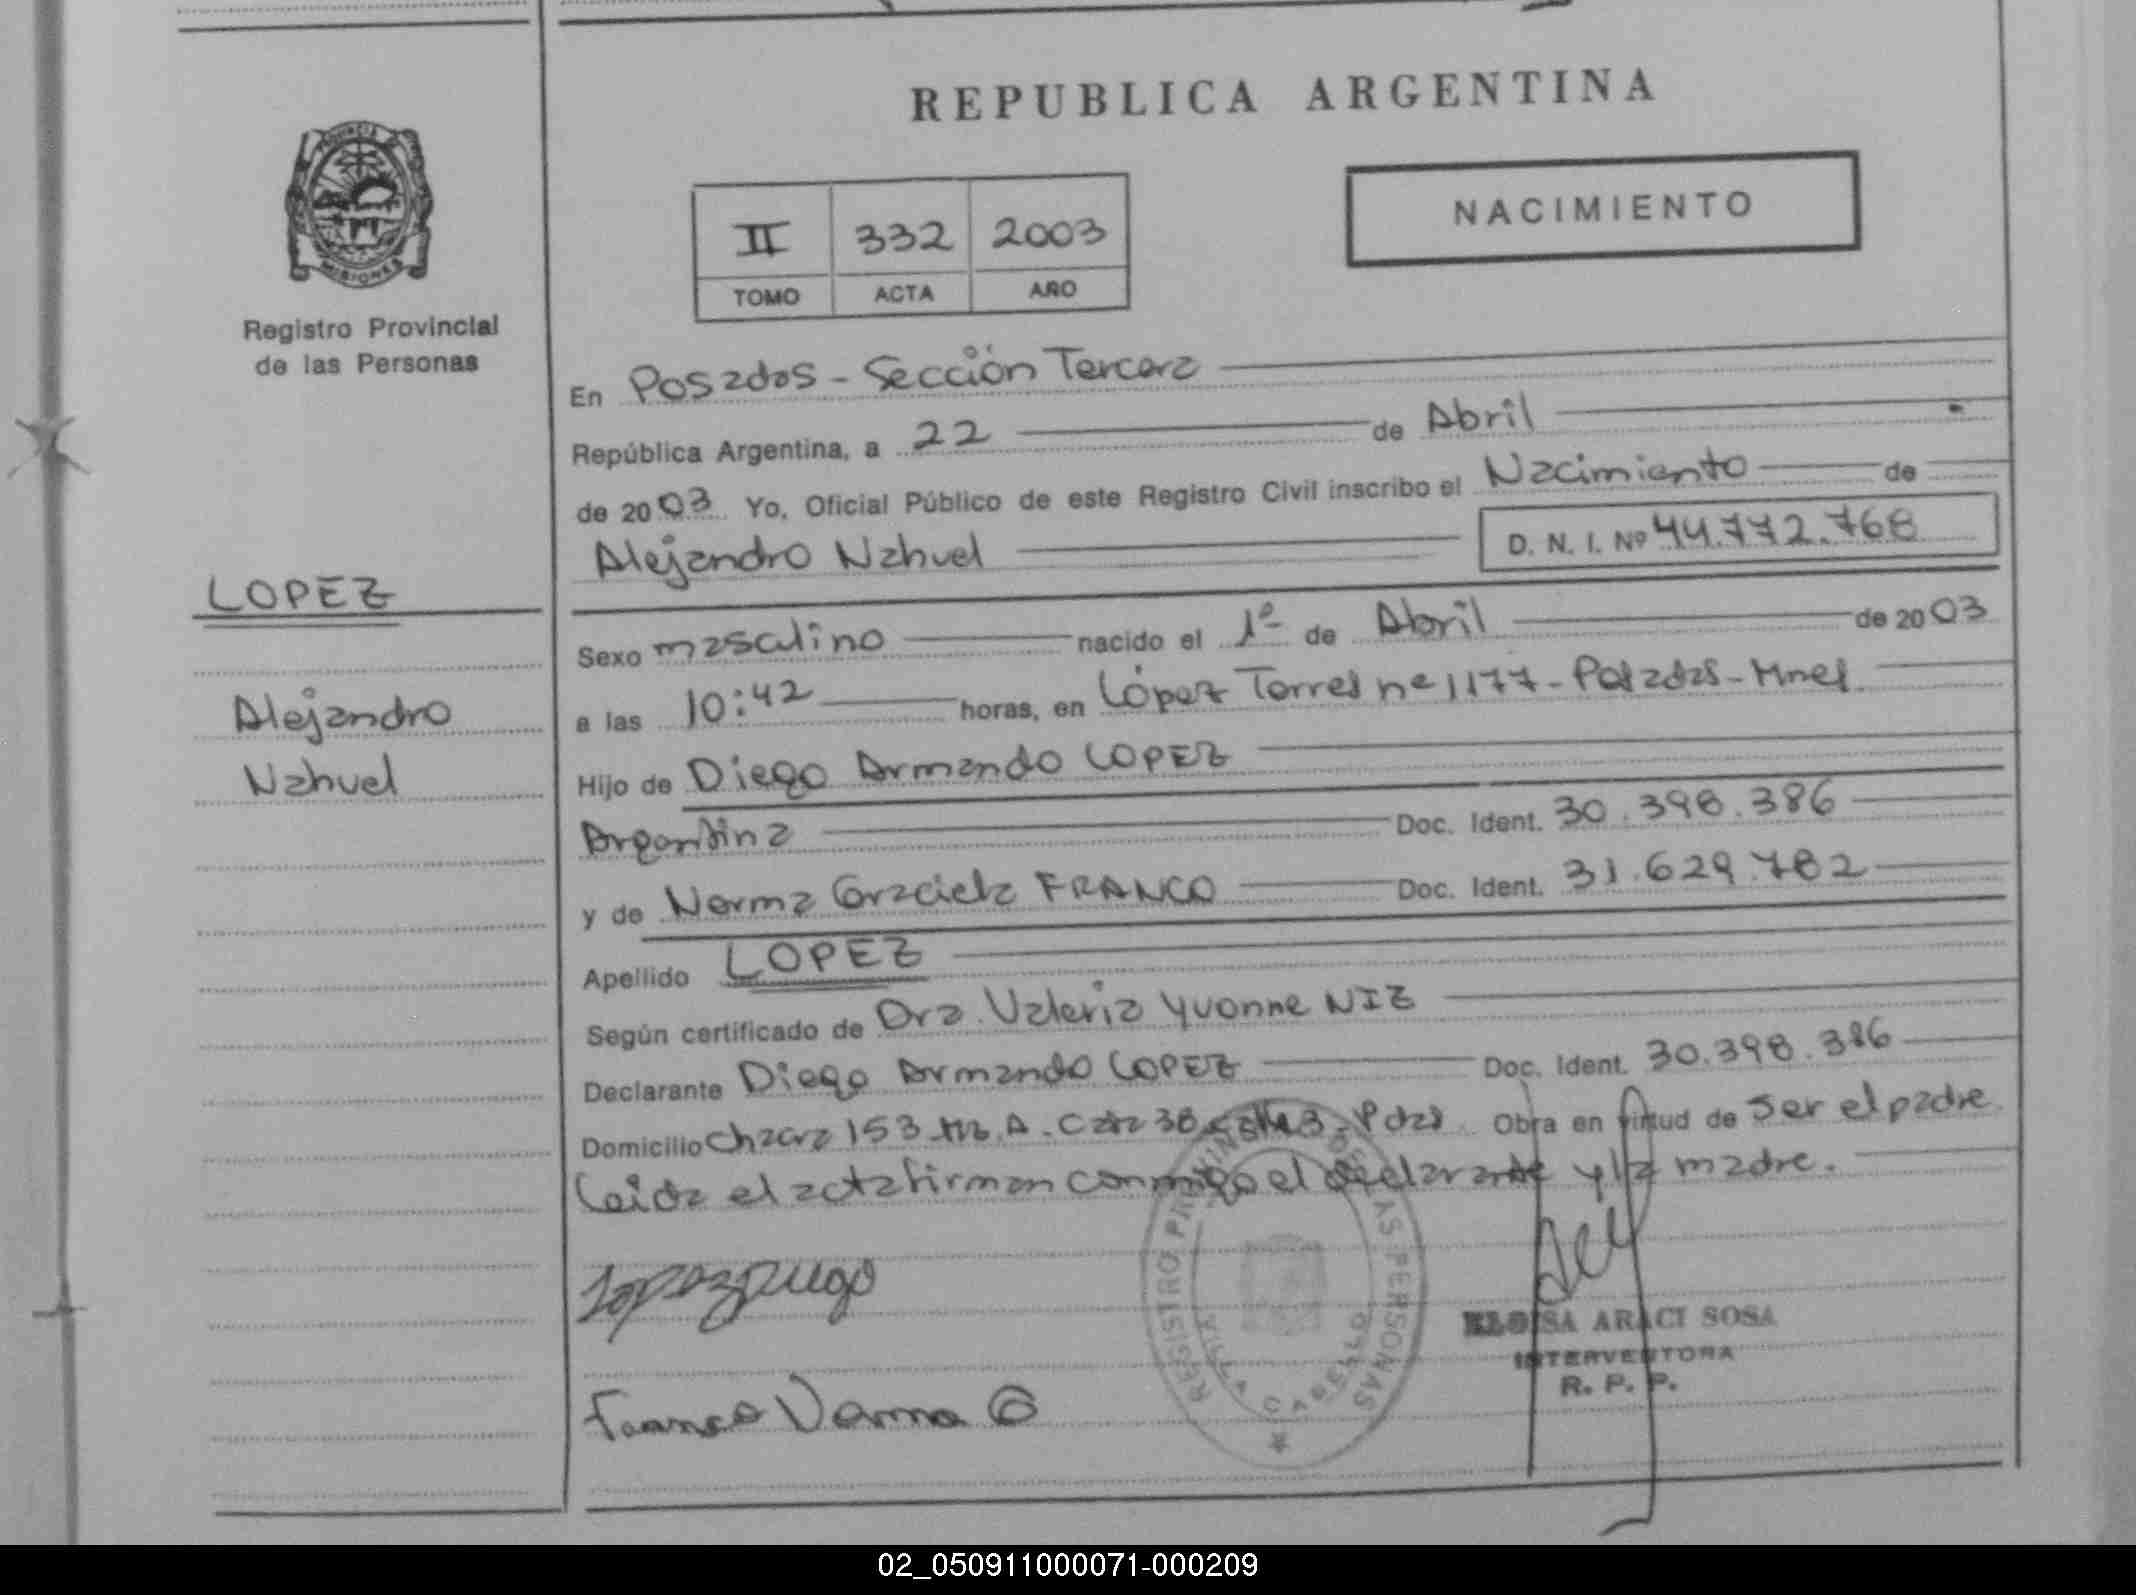 REPUBLICA ARGENTINA
NACIMIENTO
II 332 2003
TOMO ACTA AÑO
PROVINCIA DE
MISIONES
Registro Provincial
de las Personas
LOPEZ
Alejandro
Nahuel
En Posadas - Sección Tercera
República Argentina, a 22 de Abril
de 2003 Yo, Oficial Público de este Registro Civil inscribo el Nacimiento de
Alejandro Nahuel D. N. I. Nº 44.772.768
Sexo masculino nacido el 1º de Abril de 2003
a las 10:42 horas, en López Torres nº 1177 - Posadas - Mnes.
Hijo de Diego Armando LOPEZ
Argentina Doc. Ident. 30.398.386
y de Norma Graciela FRANCO Doc. Ident. 31.629.782
Apellido LOPEZ
Según certificado de Dra. Valeria Yvonne NIZ
Declarante Diego Armando LOPEZ Doc. Ident. 30.398.386
Domicilio Chacra 153 Mz. A. Casa 38 - Pdas. Obra en virtud de ser el padre.
Leida el acta firman conmigo el declarante y la madre.
Lopez Diego
Franco Norma G
REGISTRO PROVINCIAL DE LAS PERSONAS
VILLA CABELLO
ELOISA ARACI SOSA
INTERVENTORA
R. P. P.
02_050911000071-000209